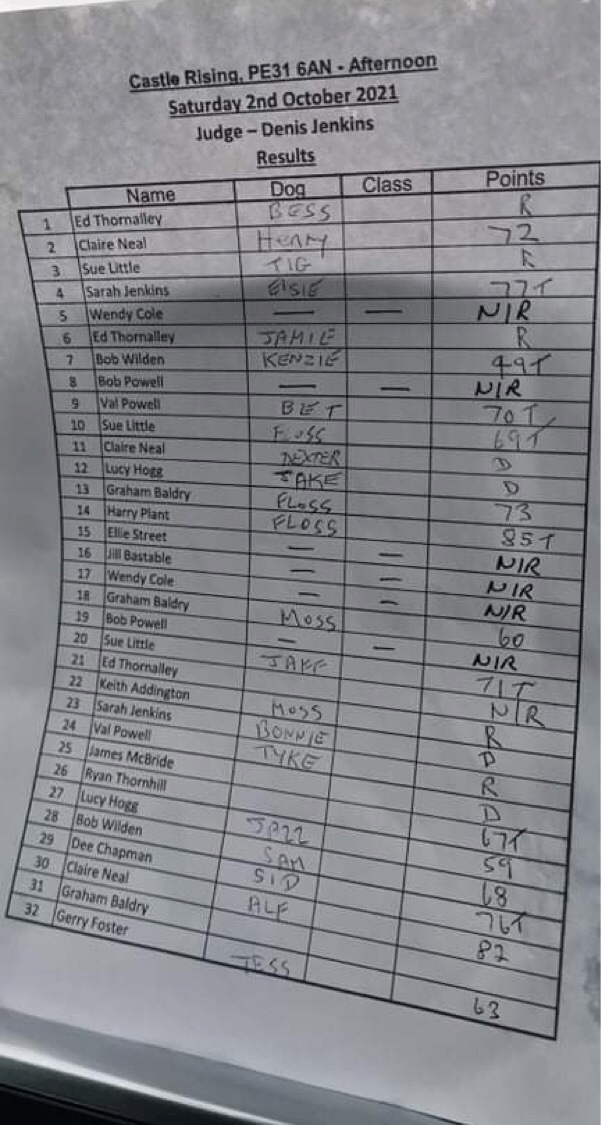 Castle Rising, PE31 6AN - Afternoon
Saturday 2nd October 2021
Judge – Denis Jenkins
Results
Name Dog Class Points
1 Ed Thornalley BESS R
2 Claire Neal Henry 72
3 Sue Little TIG R
4 Sarah Jenkins ElSIE 77T
5 Wendy Cole — — N/R
6 Ed Thornalley JAMIE R
7 Bob Wilden KENZIE 49T
8 Bob Powell — — N/R
9 Val Powell BET 70T
10 Sue Little FLOSS 69T
11 Claire Neal DEXTER D
12 Lucy Hogg JAKE D
13 Graham Baldry FLOSS 73
14 Harry Plant FLOSS 85T
15 Ellie Street — — N/R
16 Jill Bastable — — N/R
17 Wendy Cole — — N/R
18 Graham Baldry MOSS 60
19 Bob Powell — — N/R
20 Sue Little JAKE 71T
21 Ed Thornalley N/R
22 Keith Addington MOSS R
23 Sarah Jenkins BONNIE D
24 Val Powell TYKE R
25 James McBride D
26 Ryan Thornhill 67T
27 Lucy Hogg JAZZ 59
28 Bob Wilden SAM 68
29 Dee Chapman SID 76T
30 Claire Neal ALF 82
31 Graham Baldry
32 Gerry Foster JESS 63